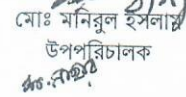 মোঃ মনিরুল ইসলাম
উপপরিচালক